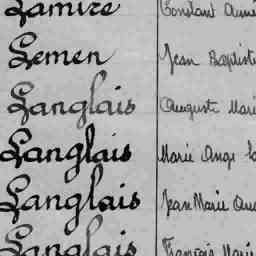 Lamire Constant Aimé
Lemen Jean Baptiste
Langlais Auguste Marie
Langlais Marie Ange
Langlais Jean Marie
Langlais François Marie